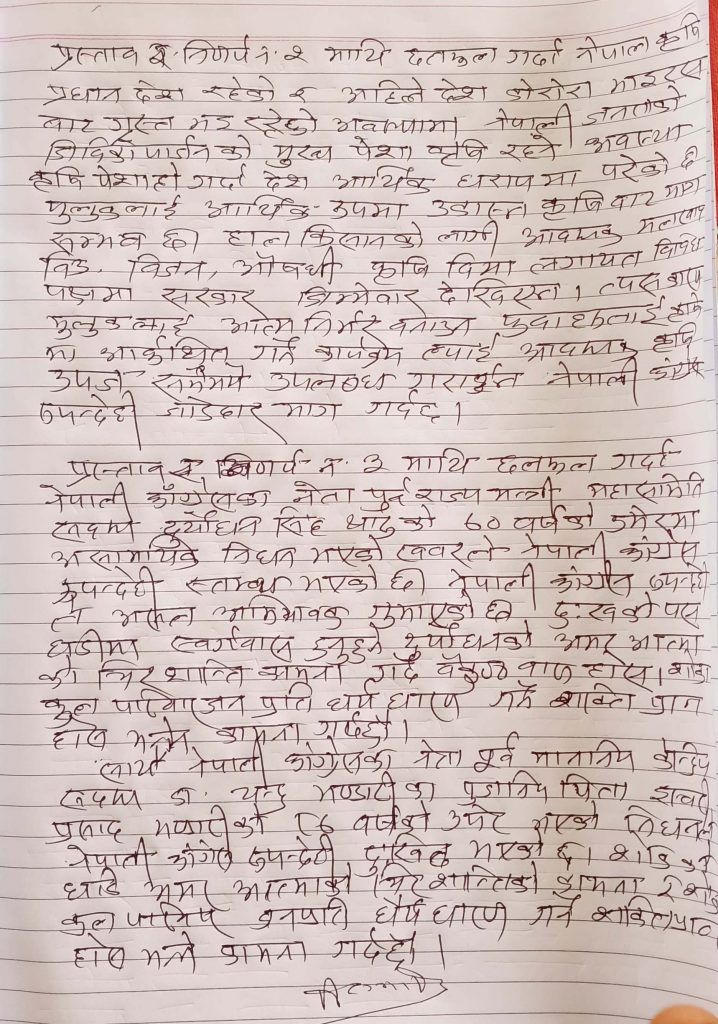 प्रस्ताव २ निर्णय नं. २ माथि छलफल गर्दा नेपाल कृषि
प्रधान देश रहेको र अहिले देश कोरोना भाइरस
बाट ग्रस्त भइ रहेको अवस्थामा नेपाली जनताको
मुख्य पेशा कृषि रहने अवस्था
कृषि पेशाहो गर्दा देश आर्थिक धरापमा परेको छ
मुलुकलाई आर्थिक रुपमा कृषिबाट मात्र
सम्भव छ। हाल किसानको लागी आवश्यक मलखाद
विउ. विजन, औषधी कृषि विमा लगायत विविध
पक्षमा सरकार जिम्मेवार देखिएन। त्यस कारण
मुलुकलाई आत्म निर्भर वनाउन युवाहरूलाई कृषि
मा आर्कषित गर्ने कार्यक्रम ल्याई आवश्यक कृषि
उपज समयमै उपलब्ध गराउन नेपाली कांग्रेस
रुपन्देही जोडदार माग गर्दछ।
प्रस्ताव र निर्णय नं. ३ माथि छलफल गर्दा
नेपाली काँग्रेसका नेता पुर्व राज्य मन्त्री महासमिति
सदस्य दुर्योधन सिंह को ६० वर्षको उमेरमा
असामायिक निधन भएको खवरले नेपाली काँग्रेस
रूपन्देही स्तब्ध भएको छ। नेपाली काँग्रेस रुपन्देही
ले असल अभिभावक गुमाएको छ दुःखको यस
घडीमा स्वर्गवास हुनुहुने दुर्योधनको अमर आत्मा
को चिर शान्ति कामना गर्दै वैकुण्ठ वास होस। शोका
कुल परिवारजन प्रति धैर्य धारण गर्ने शक्ति प्राप्त
होस भन्ने कामना गर्दछौं।
साथै नेपाली काँग्रेसका नेता पूर्व माननिय केन्द्रिय
सदस्य डा. चन्द्र भण्डारीका पुजनिय पिता
प्रसाद भण्डारीको ८६ वर्षको उमेर भएको निधनले
नेपाली काँग्रेस रुपन्देही दुखित भएको छ। शोकको
घडि अमर आत्माको चिर शान्तिको कामना र शोका
कुल परिवार जनप्रति धैर्य धारण गर्ने शक्ति प्राप्त
होस भन्ने कामना गर्दछौं।